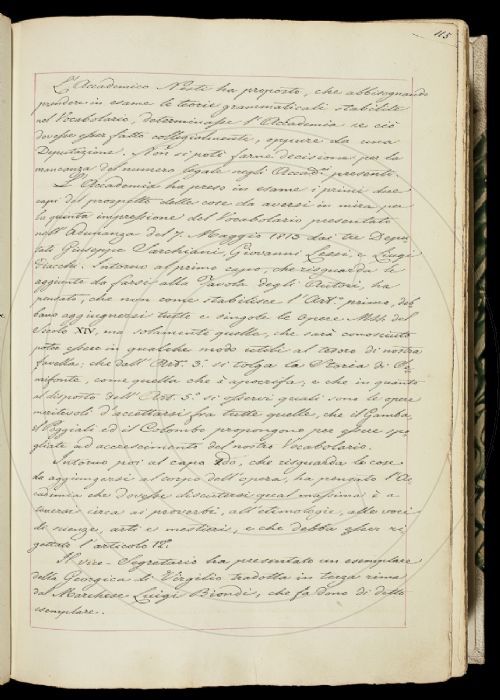 115
L'Accademico Nesti ha proposto, che abbisognando
prendere in esame le teorie grammaticali stabilite
nel Vocabolario, determinasse l'Accademia se ciò
dovesse esser fatto collegialmente, oppure da una
Deputazione. Non si potè farne decisione per la
mancanza del numero legale negli Accad.ci presenti.
L'Accademia ha preso in esame i primi due
capi del prospetto delle cose da aversi in mira per
la quinta impressione del Vocabolario presentato
nell'Adunanza del 7. Maggio 1813 dai tre Depu-
tati Giuseppe Sarchiani, Giovanni Lessi, e Luigi
Fiacchi. Intorno al primo capo, che risguarda le
aggiunte da farsi alla Tavola degli Autori, ha
pensato, che non come stabilisce l'Art.o primo, deb-
bano aggiugnersi tutte e singole le opere MSS. del
Secolo XIV, ma solamente quelle, che sarà conosciuto
poter essere in qualche modo utili al tesoro di nostra
favella; che dall'Art. 3.o si tolga la Storia di Se-
mifonte, come quella che è apocrifa, e che in quanto
al disposto dell'Art. 5.o si osservi quali sono le opere
meritevoli d'accettarsi fra tutte quelle, che il Gamba,
il Poggiali ed il Colombo propongono per essere spo-
gliate ad accrescimento del nostro Vocabolario.
Intorno poi al capo 2do, che risguarda le cose
da aggiungersi al corpo dell'opera, ha pensato l'Ac-
cademia che dovesse discutersi qual massima è a
tenersi circa ai proverbi, all'etimologie, alle voci
di scienze, arti e mestieri, e che debba esser ri-
gettato l'articolo 12.o
Il Vice-Segretario ha presentato un esemplare
della Georgica di Virgilio tradotta in terza rima
dal Marchese Luigi Biondi, che fa dono di detto
esemplare.